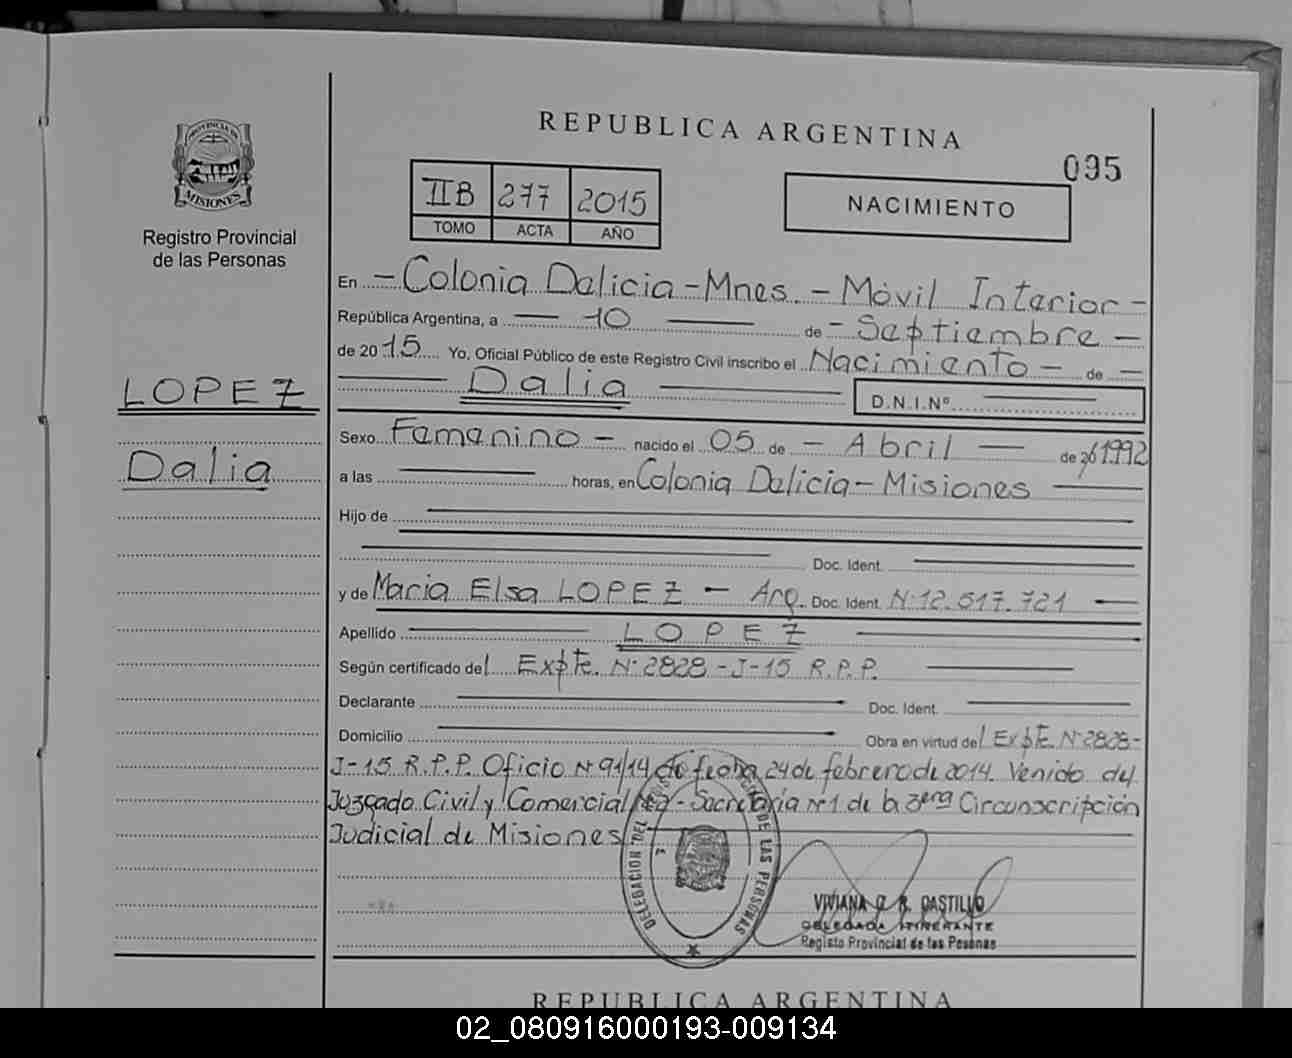 REPUBLICA ARGENTINA
095
PROVINCIA DE
MISIONES
Registro Provincial
de las Personas
IIB 277 2015
TOMO ACTA AÑO
NACIMIENTO
En - Colonia Delicia - Mnes. - Móvil Interior -
República Argentina, a — 10 — de - Septiembre -
de 2015 Yo, Oficial Público de este Registro Civil inscribo el Nacimiento - de —
— Dalia — D.N.I.Nº —
LOPEZ
Dalia
Sexo Femenino - nacido el 05 de - Abril — de 1992
a las — horas, en Colonia Delicia - Misiones —
Hijo de —
— Doc. Ident. —
y de Maria Elsa LOPEZ - Arg. Doc. Ident. Nº 12.517.721 —
Apellido — LOPEZ —
Según certificado del Expte. Nº 2828-J-15 R.P.P. —
Declarante — Doc. Ident. —
Domicilio — Obra en virtud del Expte. Nº 2828-
J-15 R.P.P. Oficio Nº 91/14 de fecha 24 de febrero de 2014. Venido del
Juzgado Civil y Comercial - Secretaría nº 1 de la 3era Circunscripción
Judicial de Misiones —
DELEGACION DEL DE LAS PERSONAS
VIVIANA R. CASTILLO
DELEGADA ITINERANTE
Registo Provincial de las Pesonas
REPUBLICA ARGENTINA
02_080916000193-009134